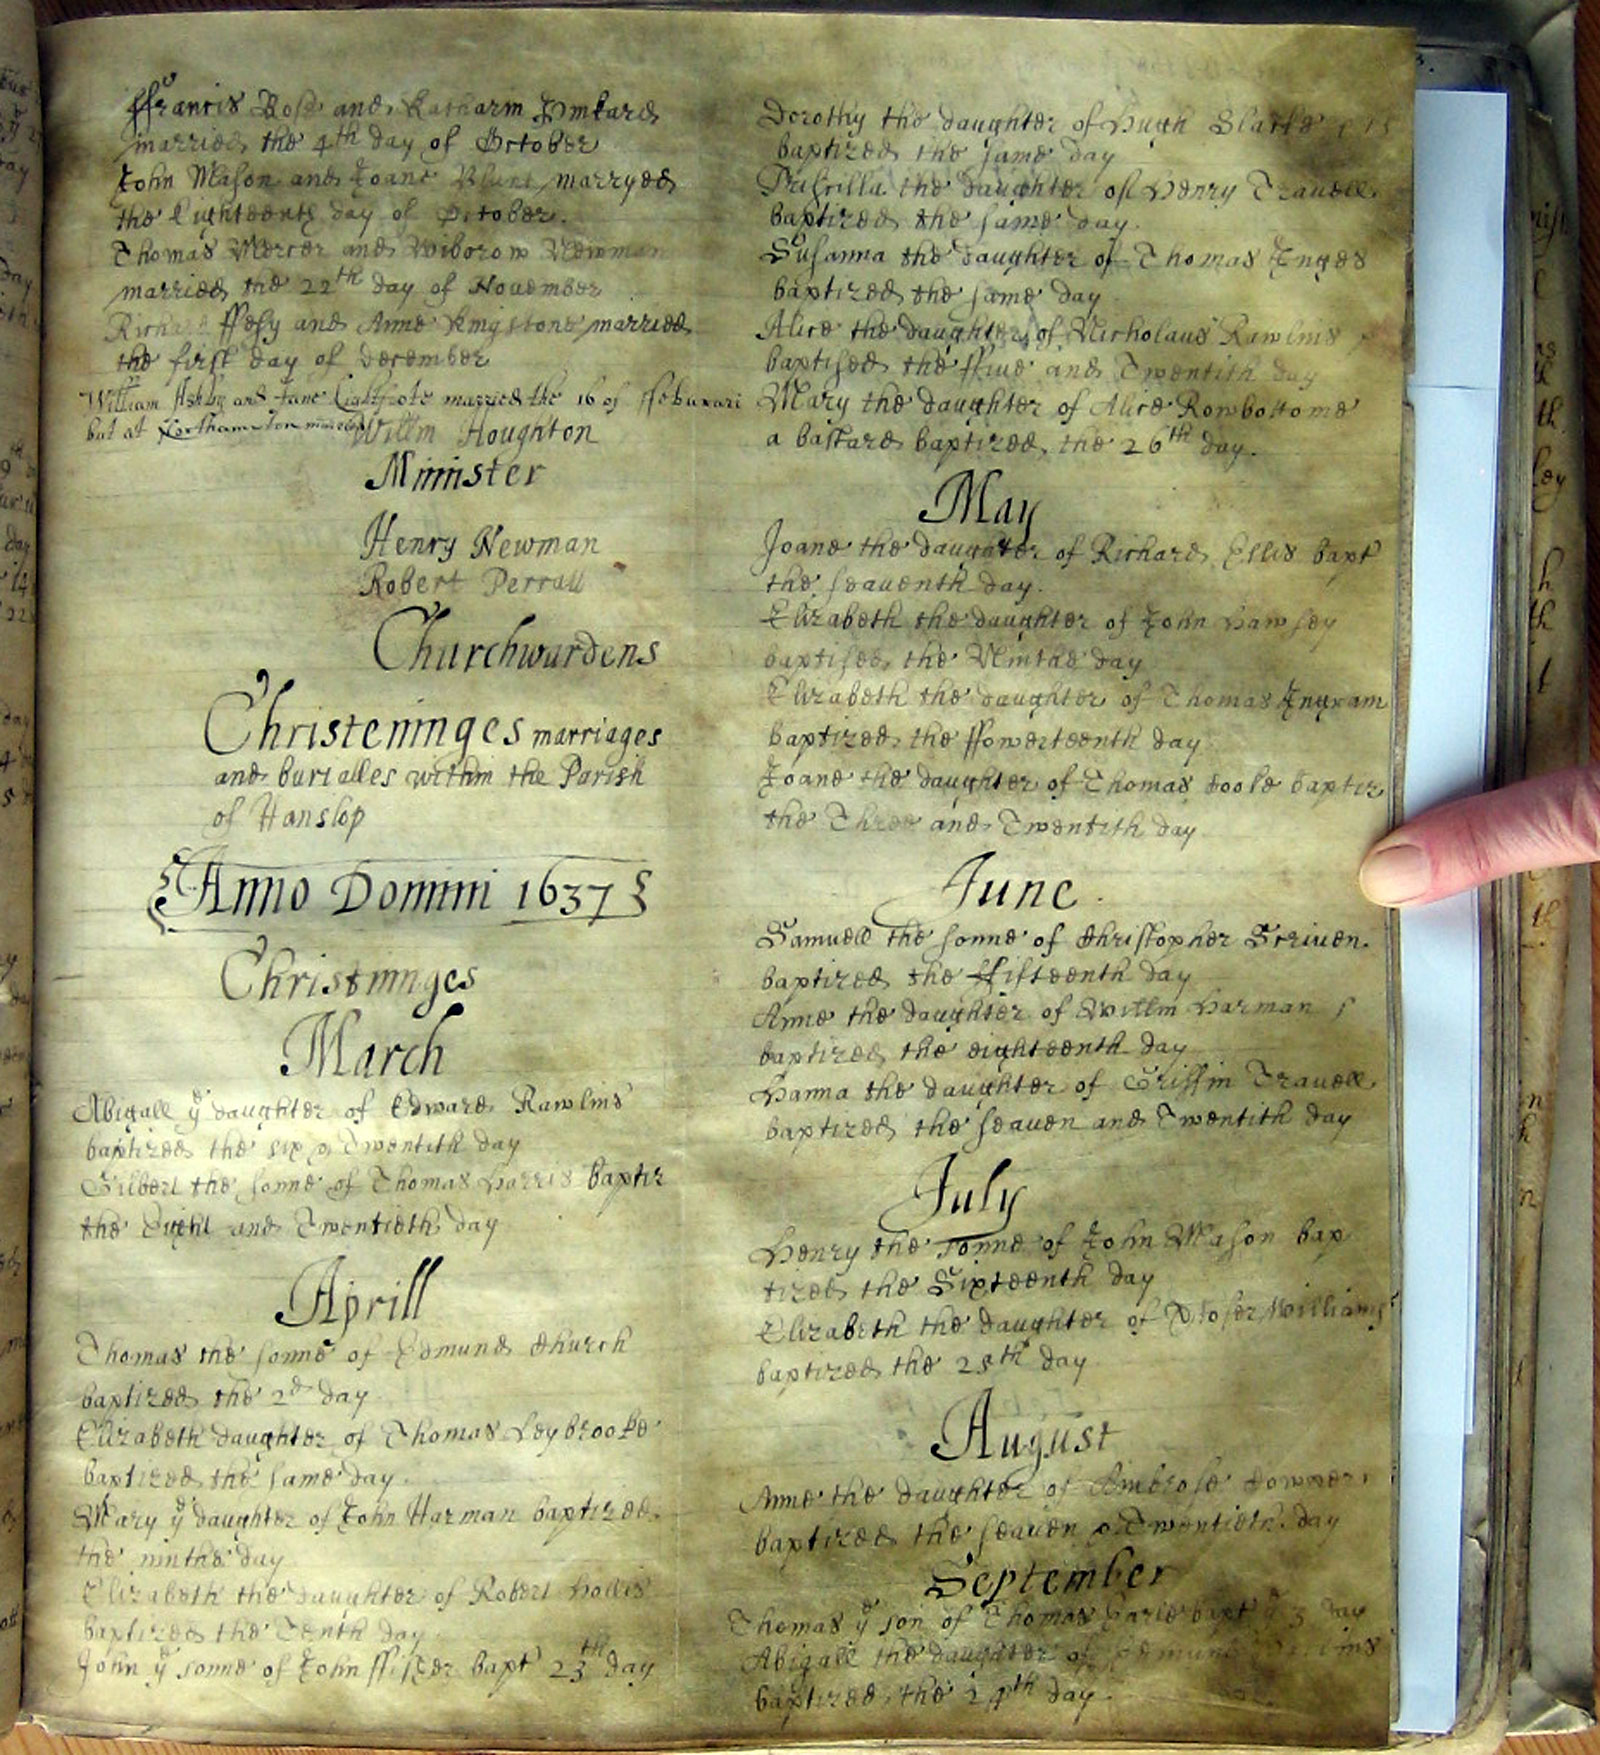 ffrancis Rose and Katharin
married the 4th day of October
John Mason and Joane Blunt marryed
the Eighteenth day of October.
Thomas Mercer and Wiborow Newman
married the 22th day of November
Richard ffesy and Anne Kingstone married
the first day of December
William Ashby and Jane Lightfote married the 16 of
but at
Willm Houghton
Minister
Henry Newman
Robert Perrall
Churchwardens
Christeninges marriages
and burialles within the Parish
of Hanslop
Anno Domini 1637
Christninges
March
Abigall ye daughter of Edward Rawlins
baptized the six & Twentith day
Gilbert the sonne of Thomas Harris baptiz
the Eight and Twentieth day
Aprill
Thomas the sonne of Edmund Church
baptized the 2d day
Elizabeth daughter of Thomas Leybrooke
baptized the same day.
Mary ye daughter of John Harman baptized
the ninthe day
Elizabeth the daughter of Robert Hollis
baptized the Tenth day
John ye sonne of John ffisher bapt 23th day
Dorothy the daughter of Hugh Slatte
baptized the same day
Priscilla the daughter of Henry Travell
baptized the same day.
Susanna the daughter of Thomas
baptized the same day
Alice the daughter of Nicholaus Rawlins
baptised the ffive and Twentith day
Mary the daughter of Alice Rowbottome
a bastard baptized the 26th day.
May
Joane the daughter of Richard Ellis bapt
the seaventh day.
Elizabeth the daughter of John Hawsey
baptised the Ninthe day
Elizabeth the daughter of Thomas Ingram
baptized the ffowerteenth day
Joane the daughter of Thomas Coole baptiz
the Three and Twentith day
June
Samuell the sonne of Christopher Scriven.
baptized the ffifteenth day
Anne the daughter of Willm Harman
baptized the eighteenth day
Hanna the daughter of Griffin Travell
baptized the seaven and Twentith day
July
Henry the sonne of John Mason bap
tized the Sixteenth day
Elizabeth the daughter of Williams
baptized the 25th day
August
Anne the daughter of Ambrose
baptized the seaven & Twentieth day
September
Thomas ye son of Thomas bapt ye 3 day
Abigall the daughter of Edmund
baptized the 24th day